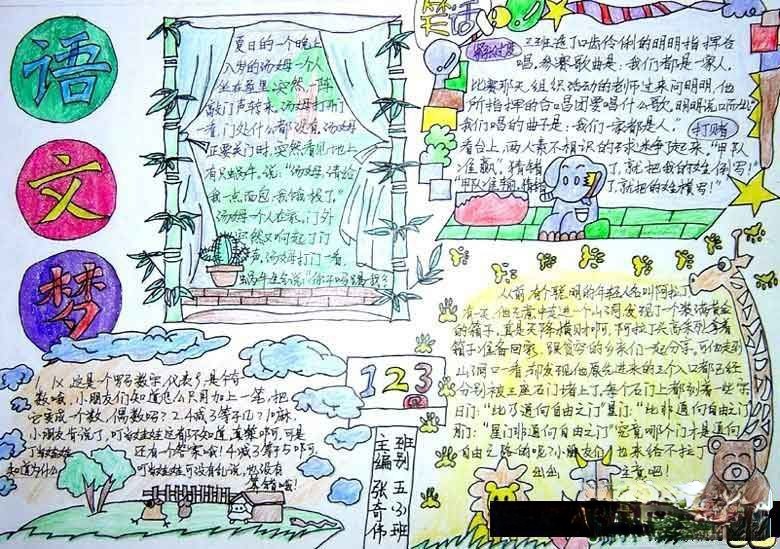 语
文
梦
夏日的一个晚上
八岁的汤姆一个人
坐在屋里,突然,一阵
敲门声转来,汤姆打开门
一看,门外什么都没有,汤姆
正要关门时,突然看见地上
有只蜗牛,说:“汤姆,请给
我一点面包,我饿极了。”
汤姆一个人在家,门外
突然又响起了门
声,汤姆打开门一看,
笑话
三班选了口齿伶俐的明明指挥合
唱,参赛歌曲是:我们都是一家人,
比赛那天,组织活动的老师过来问明明,他
所指挥的合唱团要唱什么歌,明明脱口而出
“我们唱的曲子是:我们一家都是人。”
打赌
看台上,两人素不相识的球迷争起来,“甲队
准赢”,猜错了,就把我的姓倒写!”
“甲队准输,猜错了,就把的姓横写!”
从前,有个聪明的年轻人名叫阿拉丁
有一天,他无意中走进一个山洞,发现了一个装满黄金
的箱子,真是天降横财啊,阿拉丁兴高采烈拿着
箱子准备回家,跟贫穷的乡亲们一起分享,可他走到
山洞口一看,却发现他原先进来的三个入口都已经
分别被三座石门堵上了,每个石门上都刻着一些字
日门:“比乃通向自由之门”星门:“比非通向自由之门”
月门:“星门非通向自由之门”究竟哪个门才是通向
自由之路的呢?小朋友们也来给阿拉丁
出出主意吧!
123
班别 五(3)班
主编 张奇伟
1. IX,这是一个罗马数字,代表9,是个奇
数哦,小朋友们知道怎么只用加上一笔,把
它变成个数,偶数吗?2. 4减3等于几?1嘛,
小朋友肯说了,叮当娃娃这都不知道,真笨啊,可是
还有个答案哦!4减3等于5啊,可
知道为什么 叮当娃娃可没有乱说,也没有
算错哦!